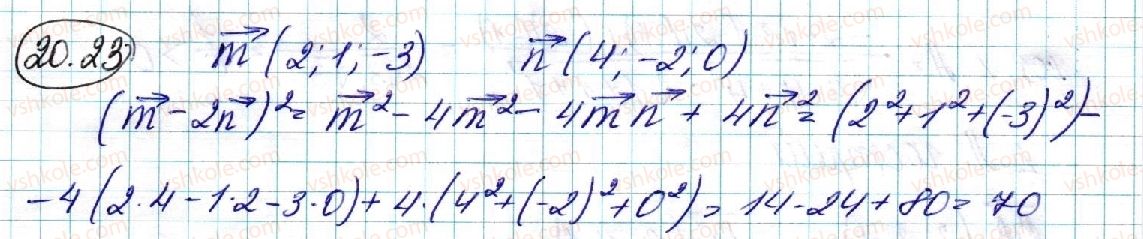 20.23 m⃗ (2; 1; -3) n⃗ (4; -2; 0)
(m⃗ - 2n⃗)² = m⃗² - 4m⃗² - 4m⃗n⃗ + 4n⃗² = (2² + 1² + (-3)²) -
- 4(2·4 - 1·2 - 3·0) + 4·(4² + (-2)² + 0²) = 14 - 24 + 80 = 70
vshkole.com